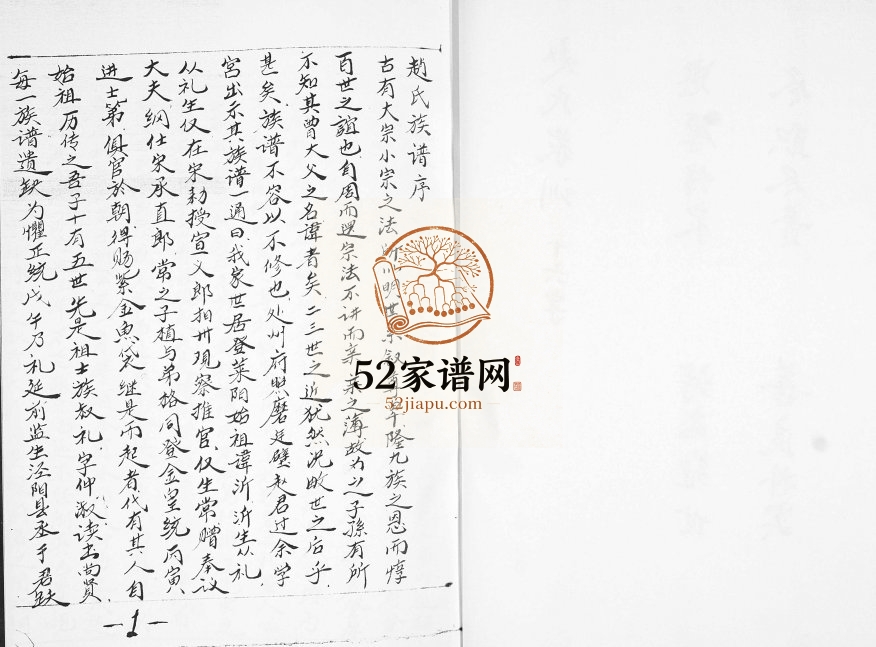 趙氏族谱序
古有大宗小宗之法所以明世系叙尊卑隆九族之恩而惇
百世之誼也自周而還宗法不讲而亲亲之薄故为之子孫有所
不知其曽大父之名諱者矣二三世之近犹然况敗世之后乎
甚矣族谱不容以不修也处州府照磨廷璧赵君过余学
宫出示其族谱一通曰我家世居登莱阳始祖諱沂沂生从礼
从礼生仅在宋勅授宣义郎拍州观察推官仅生常赠奉议
大夫纲仕宋承直郎常之子植与弟格同登金皇统丙寅
进士第俱官於朝得赐紫金魚袋继是而起者代有其人自
始祖历传之吾子十有五世先是祖士族叔礼字仲淑读书尚贤
每一族谱遗缺为懼正統戊午乃礼延前监生泾阳县丞于君
-1-
52家谱网
52jiapu.com